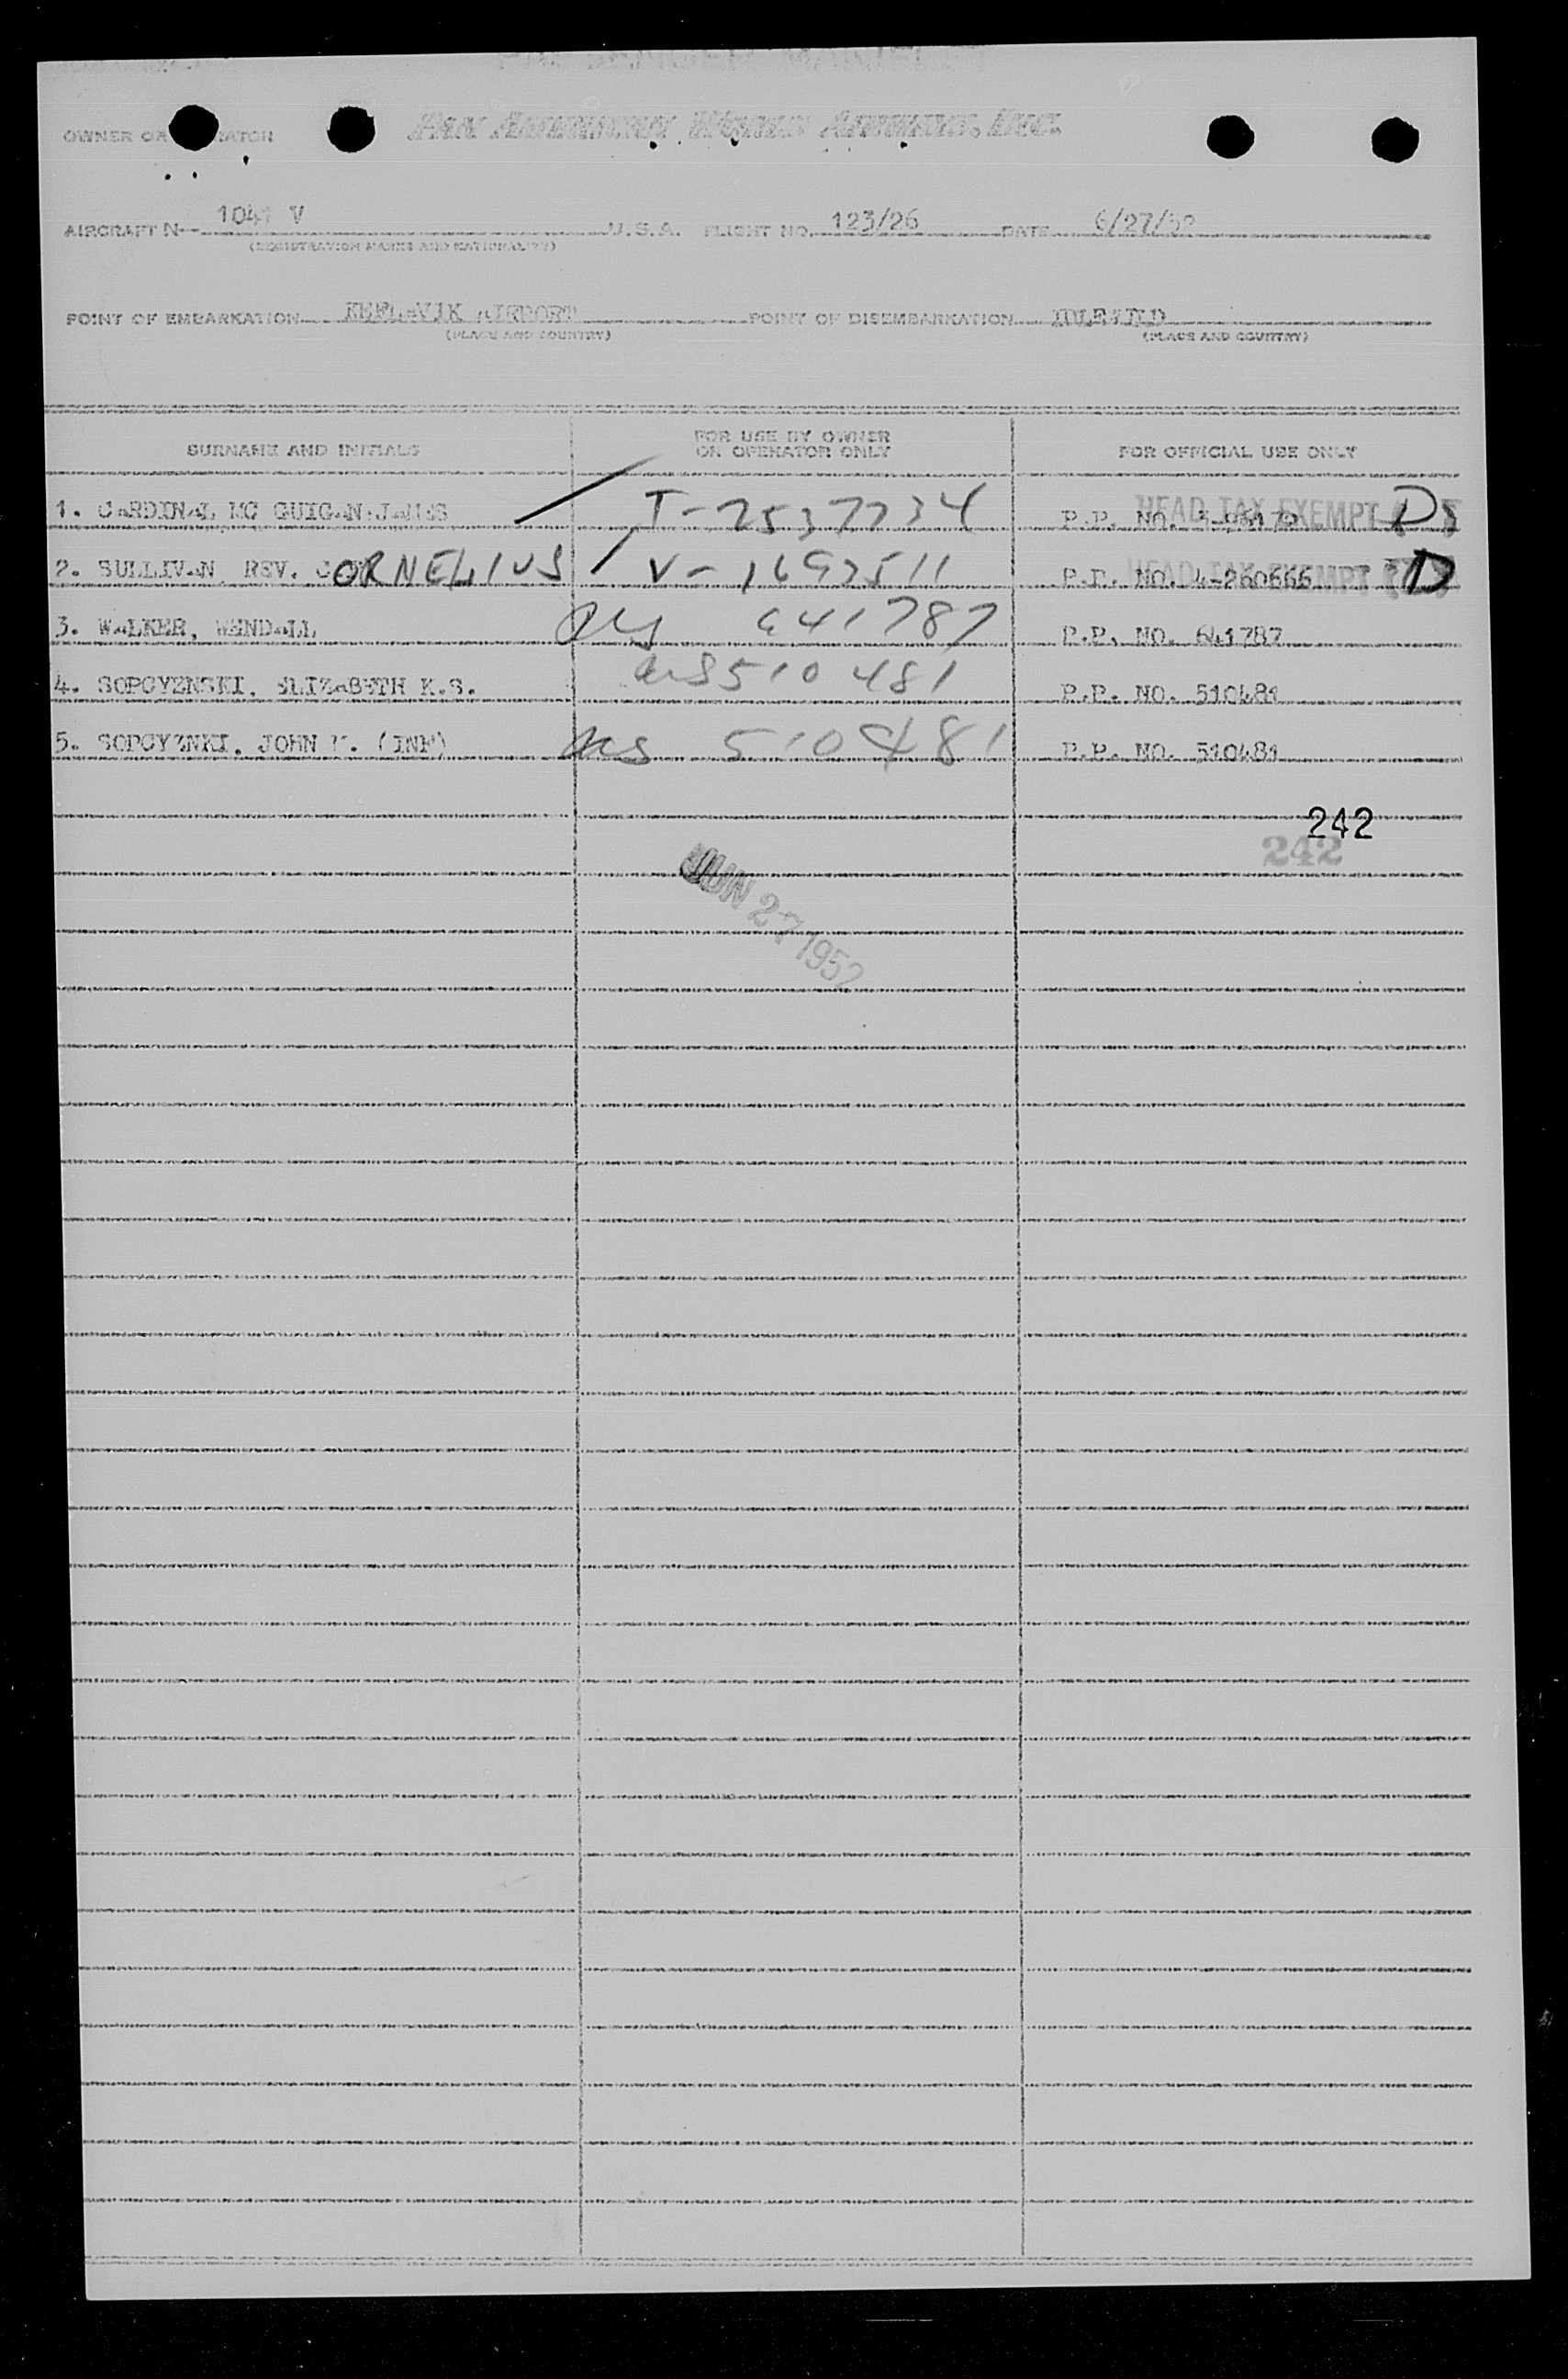 PASSENGER MANIFEST
OWNER OR OPERATOR PAN AMERICAN WORLD AIRWAYS, INC.
AIRCRAFT N- 1041 V U.S.A. FLIGHT NO. 123/26 DATE 6/27/52
(REGISTRATION MARKS AND NATIONALITY)
POINT OF EMBARKATION KEFLAVIK AIRPORT POINT OF DISEMBARKATION IDLEWILD
(PLACE AND COUNTRY) (PLACE AND COUNTRY)
SURNAME AND INITIALS
FOR USE BY OWNER
OR OPERATOR ONLY
FOR OFFICIAL USE ONLY
1. CARDINAL MC GUIGAN JAMES T-2537734 P.P. NO. HEAD TAX EXEMPT
2. SULLIVAN, REV. CORNELIUS V-1692511 P.P. NO. 4-260666 HEAD TAX EXEMPT D
3. WALKER, WENDALL 641787 P.P. NO. 641787
4. SOPCYZNSKI, ELIZABETH K.S. 510481 P.P. NO. 510481
5. SOPCYZNKI, JOHN (INF) 510481 P.P. NO. 510481
242
242
JUN 27 1952